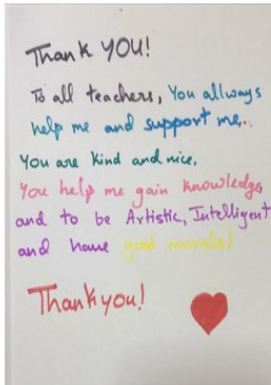 Thank YOU!
To all teachers, You allways
help me and support me...
You are kind and nice.
You help me gain knowledge
and to be Artistic, Intelligent
and have good morals!
Thank you!